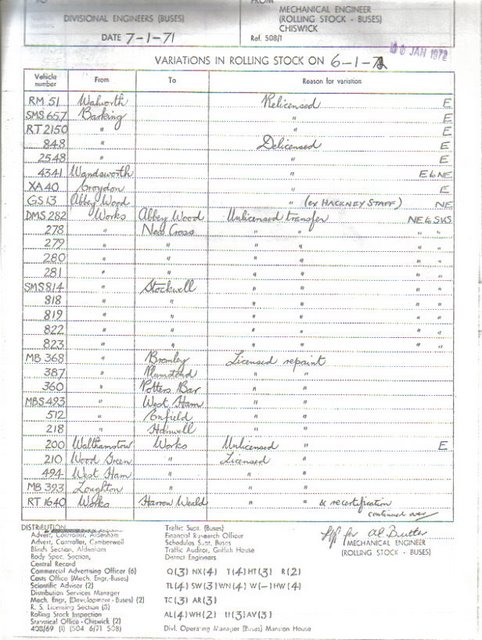 TO
FROM
DIVISIONAL ENGINEERS (BUSES)
MECHANICAL ENGINEER
(ROLLING STOCK - BUSES)
CHISWICK
DATE 7-1-71
Ref. 508/1
JAN 1972
VARIATIONS IN ROLLING STOCK ON 6-1-72
Vehicle number From To Reason for variation
RM 51 Walworth Relicensed E
SMS 657 Barking " E
RT 2150 " " E
848 " Delicensed E
2548 " " E
4341 Wandsworth " E & NE
XA 40 Croydon " E
GS 13 Abbey Wood " (ex HACKNEY STAFF) NE
DMS 282 Works Abbey Wood Unlicensed transfer NE & SVS
278 " New Cross " " " "
279 " " " " " "
280 " " " " " "
281 " " " " " "
SMS 814 " Stockwell " " " "
818 " " " " " "
819 " " " " " "
822 " " " " " "
823 " " " " " "
MB 368 " Bromley Licensed repaint
387 " Plumstead " "
360 " Potters Bar " "
MBS 493 " West Ham " "
512 " Enfield " "
218 " Hanwell " "
200 Walthamstow Works Unlicensed " E
210 Wood Green " Licensed "
494 West Ham " " "
MB 393 Loughton " " "
RT 1640 Works Harrow Weald " " & recertification
continued over
DISTRIBUTION
Advert. Controller, Aldenham
Advert. Controller, Camberwell
Blinds Section, Aldenham
Body Spec. Section,
Central Record
Commercial Advertising Officer (6)
Costs Office (Mech. Engr.-Buses)
Scientific Adviser (2)
Distribution Services Manager
Mech. Engr. (Development - Buses) (2)
R. S. Licensing Section (5)
Rolling Stock Inspection
Surveyor Office - Chiswick (2)
408/69 (1) (504 6/71 508)
Traffic Supt. (Buses)
Financial Research Officer
Schedules Supt. Buses
Traffic Auditor, Griffith House
District Engineers
Q(3) NX(4) T(4) HT(3) R(2)
TL(4) SW(3) WN(4) W(-) HW(4)
TC(3) AR(3)
AL(4) WH(2) U(3) AV(3)
Divl. Operating Manager (Buses) Mansion House
MECHANICAL ENGINEER
(ROLLING STOCK - BUSES)